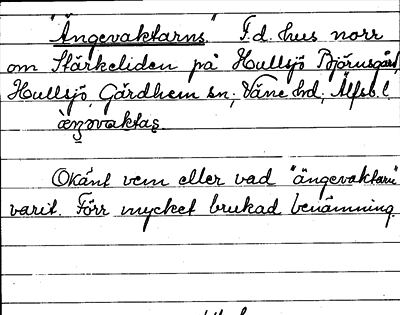 "Ängevaktarns" F.d. hus norr
om Stärkeliden på Hullsjö Björnsgård,
Hullsjö, Gärdhem sn; Väne hd, Älfsb. l.
Okänt vem eller vad "ängevaktarn"
varit. Förr mycket brukad benämning.